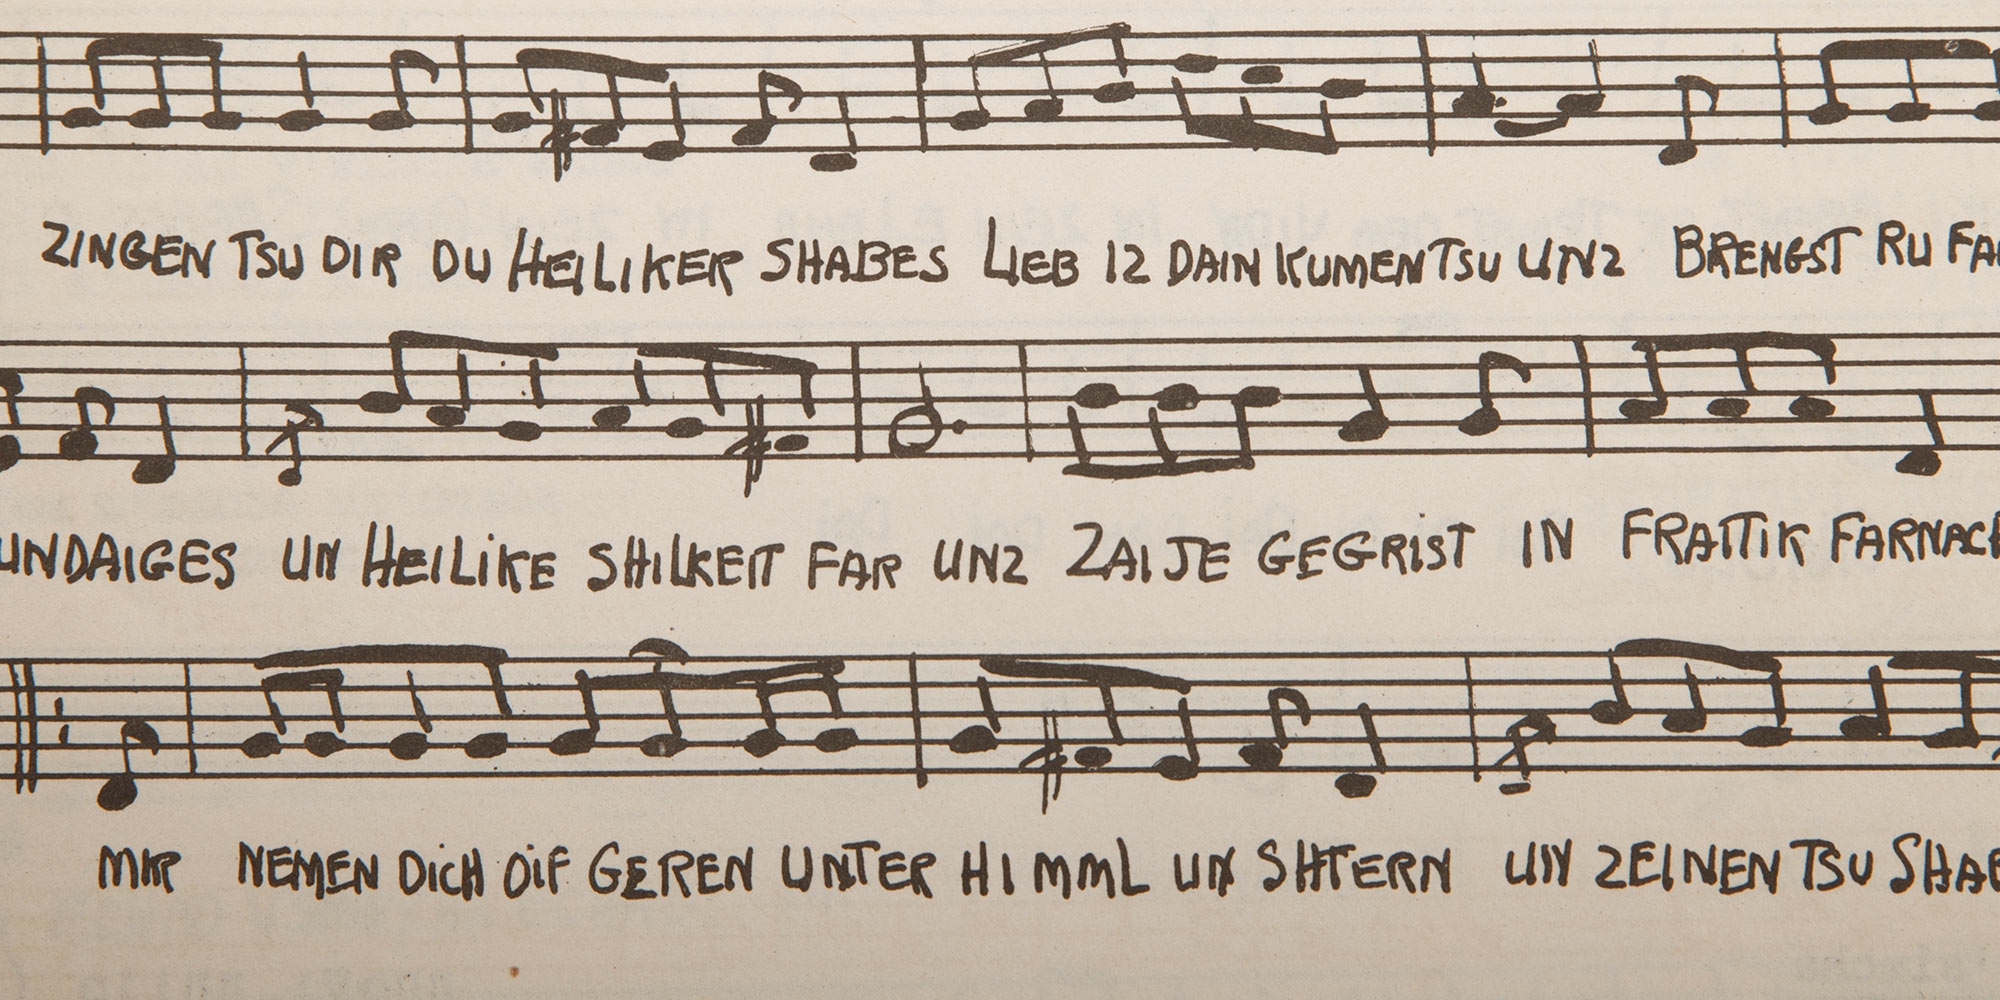 ZINGEN TSU DIR DU HEILIKER SHABES LIEB IZ DAIN KUMEN TSU UNZ BRENGST RU FA
UNDAIGES UN HEILIKE SHILKEIT FAR UNZ ZAI JE GEGRIST IN FRAITIK FARNACH
MIR NEMEN DICH OIF GEREN UNTER HIMML UN SHTERN UN ZEINEN TSU SHAB